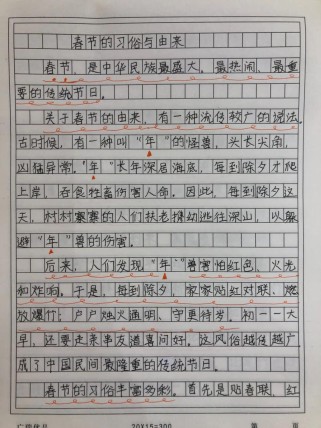 春节的习俗与由来
春节，是中华民族最盛大、最热闹、最重
要的传统节日。
关于春节的由来，有一种流传较广的说法。
古时候，有一种叫“年”的怪兽，头长尖角，
凶猛异常。“年”长年深居海底，每到除夕才爬
上岸，吞食牲畜伤害人命。因此，每到除夕这
天，村村寨寨的人们扶老携幼逃往深山，以躲
避“年”兽的伤害。
后来，人们发现“年”兽害怕红色、火光
和炸响。于是，每到除夕，家家贴红对联、燃
放爆竹；户户烛火通明、守更待岁。初一一大
早，还要走亲串友道喜问好。这风俗越传越广，
成了中国民间最隆重的传统节日。
春节的习俗丰富多彩。首先是贴春联、红
20X15=300
页